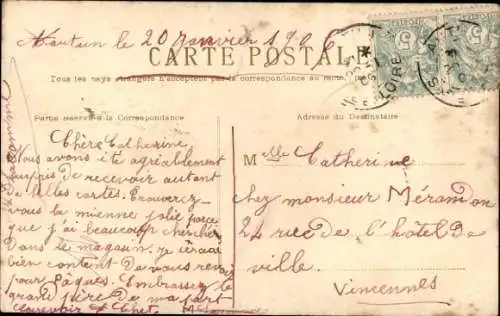 Nantun le 20 Janvier 1906
CARTE POSTALE
Tous les pays étrangers n'acceptent pas la correspondance au recto.
Partie réservée à la Correspondance
Adresse du Destinataire
Chère Catherine
Nous avons été agréablement
surpris de recevoir autant
de belles cartes. Trouverez-
vous la mienne jolie parce
que j'ai beaucoup chercher
dans le magasin. Je serai
bien content de vous revoir
pour Pâques. Embrassez le
grand père de ma part
aurevoir
Melle Catherine
chez monsieur Mérandon
24 rue de l'hôtel de
ville.
Vincennes
5
5
LOIRE